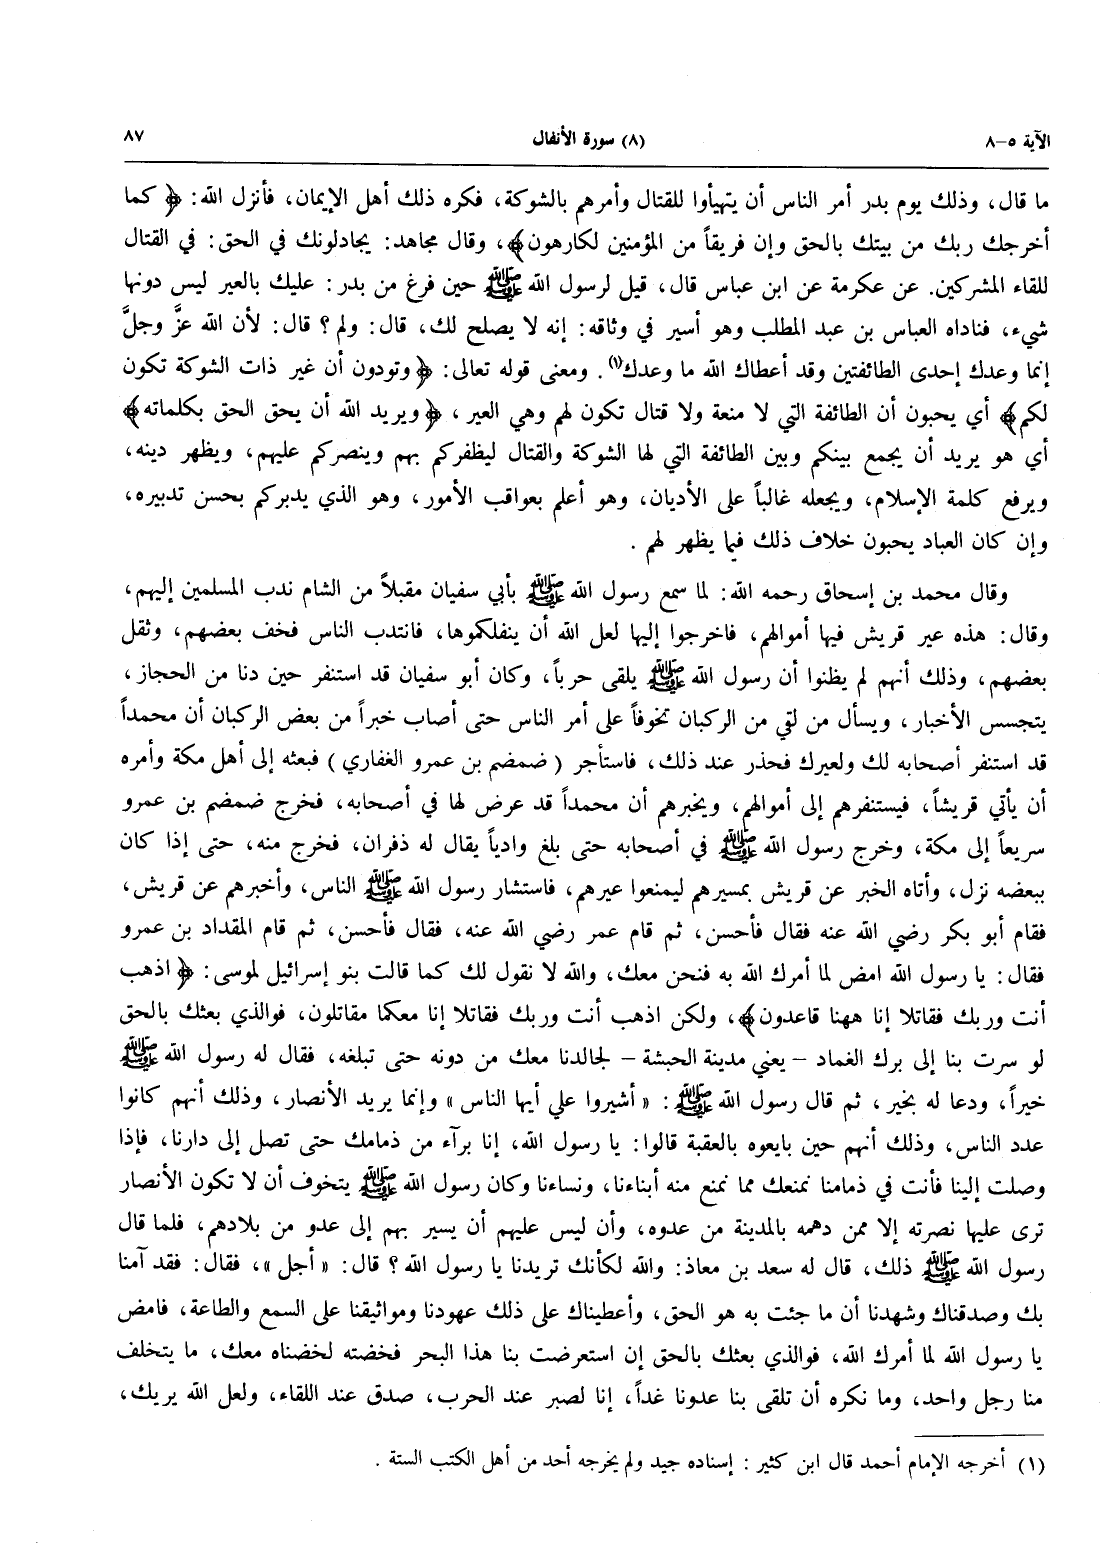 الآية ٥-٨ (٨) سورة الأنفال ٨٧
ما قال، وذلك يوم بدر أمر الناس أن يتهيأوا للقتال وأمرهم بالشوكة، فكره ذلك أهل الإيمان، فأنزل الله: ﴿كما
أخرجك ربك من بيتك بالحق وإن فريقاً من المؤمنين لكارهون﴾، وقال مجاهد: يجادلونك في الحق: في القتال
للقاء المشركين. عن عكرمة عن ابن عباس قال، قيل لرسول الله ﷺ حين فرغ من بدر: عليك بالعير ليس دونها
شيء، فناداه العباس بن عبد المطلب وهو أسير في وثاقه: إنه لا يصلح لك، قال: ولم؟ قال: لأن الله عزَّ وجلَّ
إنما وعدك إحدى الطائفتين وقد أعطاك الله ما وعدك(١). ومعنى قوله تعالى: ﴿وتودون أن غير ذات الشوكة تكون
لكم﴾ أي يحبون أن الطائفة التي لا منعة ولا قتال تكون لهم وهي العير، ﴿ويريد الله أن يحق الحق بكلماته﴾
أي هو يريد أن يجمع بينكم وبين الطائفة التي لها الشوكة والقتال ليظفركم بهم وينصركم عليهم، ويظهر دينه،
ويرفع كلمة الإسلام، ويجعله غالباً على الأديان، وهو أعلم بعواقب الأمور، وهو الذي يدبركم بحسن تدبيره،
وإن كان العباد يحبون خلاف ذلك فيما يظهر لهم.
وقال محمد بن إسحاق رحمه الله: لما سمع رسول الله ﷺ بأبي سفيان مقبلاً من الشام ندب المسلمين إليهم،
وقال: هذه عير قريش فيها أموالهم، فاخرجوا إليها لعل الله أن ينفلكموها، فانتدب الناس فخف بعضهم، وثقل
بعضهم، وذلك أنهم لم يظنوا أن رسول الله ﷺ يلقى حرباً، وكان أبو سفيان قد استنفر حين دنا من الحجاز،
يتجسس الأخبار، ويسأل من لقي من الركبان تخوفاً على أمر الناس حتى أصاب خبراً من بعض الركبان أن محمداً
قد استنفر أصحابه لك ولعيرك فحذر عند ذلك، فاستأجر (ضمضم بن عمرو الغفاري) فبعثه إلى أهل مكة وأمره
أن يأتي قريشاً، فيستنفرهم إلى أموالهم، ويخبرهم أن محمداً قد عرض لها في أصحابه، فخرج ضمضم بن عمرو
سريعاً إلى مكة، وخرج رسول الله ﷺ في أصحابه حتى بلغ وادياً يقال له ذفران، فخرج منه، حتى إذا كان
ببعضه نزل، وأتاه الخبر عن قريش بمسيرهم ليمنعوا عيرهم، فاستشار رسول الله ﷺ الناس، وأخبرهم عن قريش،
فقام أبو بكر رضي الله عنه فقال فأحسن، ثم قام عمر رضي الله عنه، فقال فأحسن، ثم قام المقداد بن عمرو
فقال: يا رسول الله امض لما أمرك الله به فنحن معك، والله لا نقول لك كما قالت بنو إسرائيل لموسى: ﴿اذهب
أنت وربك فقاتلا إنا ههنا قاعدون﴾، ولكن اذهب أنت وربك فقاتلا إنا معكما مقاتلون، فوالذي بعثك بالحق
لو سرت بنا إلى برك الغماد – يعني مدينة الحبشة – لجالدنا معك من دونه حتى تبلغه، فقال له رسول الله ﷺ
خيراً، ودعا له بخير، ثم قال رسول الله ﷺ: «أشيروا علي أيها الناس» وإنما يريد الأنصار، وذلك أنهم كانوا
عدد الناس، وذلك أنهم حين بايعوه بالعقبة قالوا: يا رسول الله، إنا برآء من ذمامك حتى تصل إلى دارنا، فإذا
وصلت إلينا فأنت في ذمامنا نمنعك مما نمنع منه أبناءنا، ونساءنا وكان رسول الله ﷺ يتخوف أن لا تكون الأنصار
ترى عليها نصرته إلا ممن دهمه بالمدينة من عدوه، وأن ليس عليهم أن يسير بهم إلى عدو من بلادهم، فلما قال
رسول الله ﷺ ذلك، قال له سعد بن معاذ: والله لكأنك تريدنا يا رسول الله؟ قال: «أجل»، فقال: فقد آمنا
بك وصدقناك وشهدنا أن ما جئت به هو الحق، وأعطيناك على ذلك عهودنا ومواثيقنا على السمع والطاعة، فامض
يا رسول الله لما أمرك الله، فوالذي بعثك بالحق إن استعرضت بنا هذا البحر فخضته لخضناه معك، ما يتخلف
منا رجل واحد، وما نكره أن تلقى بنا عدونا غداً، إنا لصبر عند الحرب، صدق عند اللقاء، ولعل الله يريك،
(١) أخرجه الإمام أحمد قال ابن كثير: إسناده جيد ولم يخرجه أحد من أهل الكتب الستة.